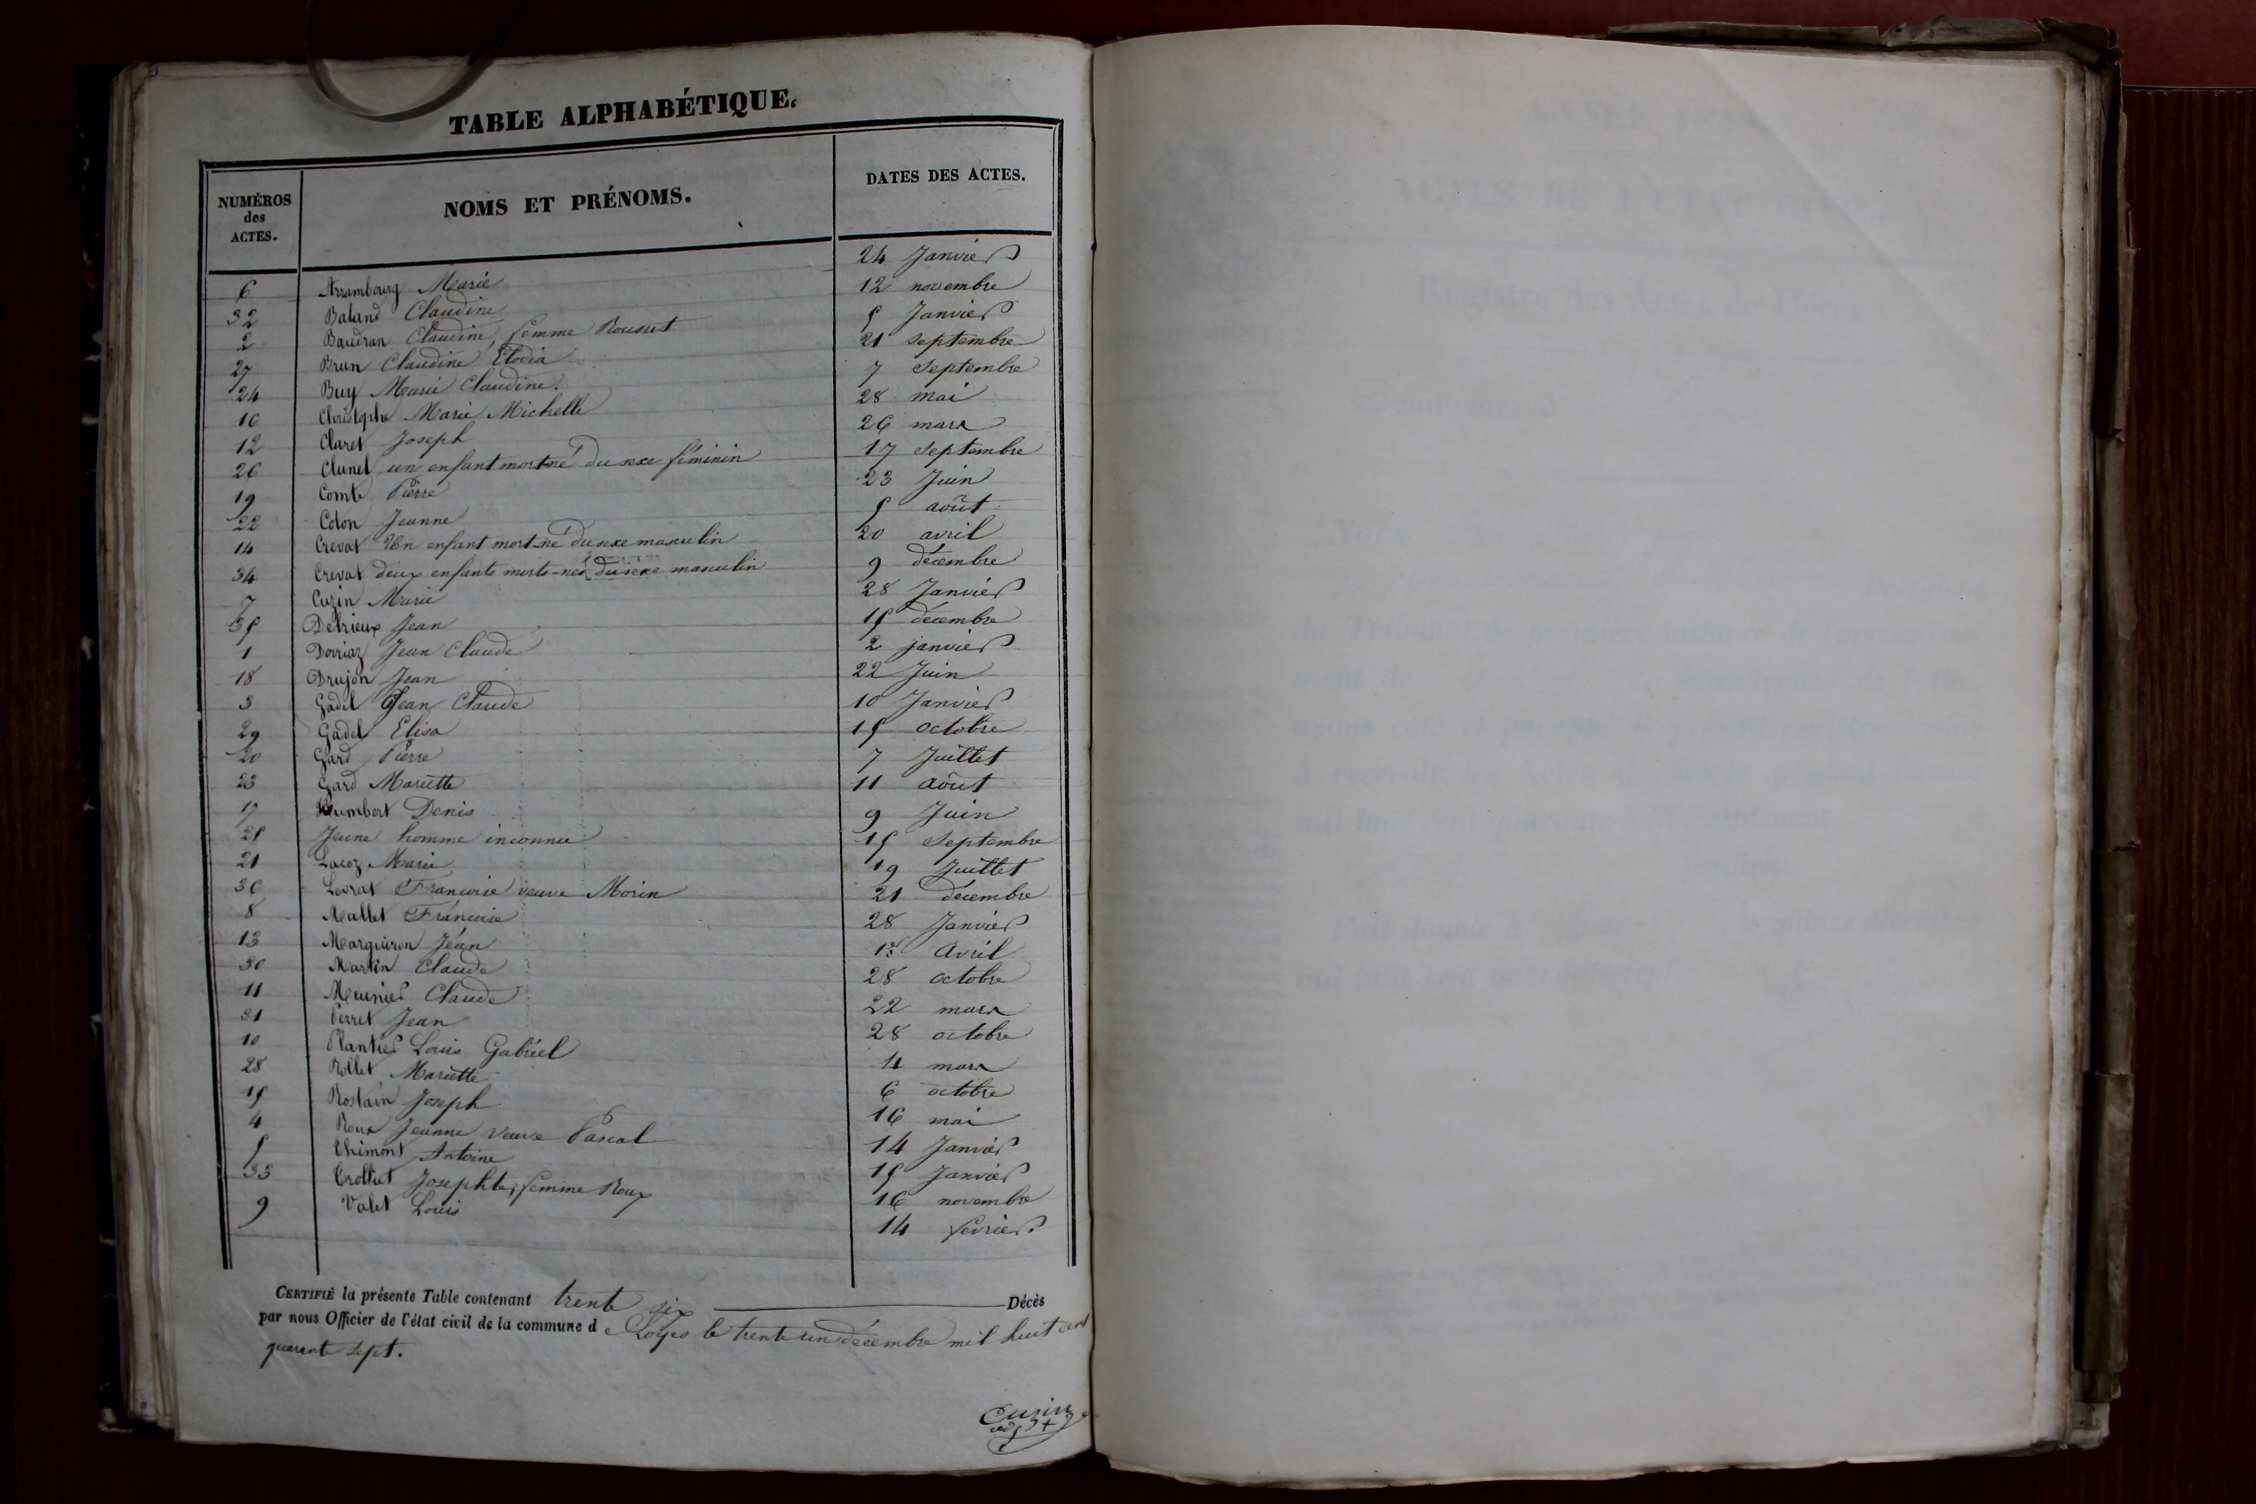 TABLE ALPHABÉTIQUE.
NUMÉROS des ACTES. NOMS ET PRÉNOMS. DATES DES ACTES.
6 Arrambourg Marie 24 Janvier
32 Baland Claudine 12 novembre
2 Baudran Claudine, femme Rousset 5 Janvier
27 Brun Claudine Elodia 21 septembre
24 Buy Marie Claudine. 7 Septembre
16 Christophe Marie Michelle 28 mai
12 Claret Joseph 26 mars
26 Clunet un enfant mort-né du sexe féminin 17 septembre
19 Comte Pierre 23 Juin
22 Coton Jeanne 5 août
14 Crevat Un enfant mort-né du sexe masculin 20 avril
34 Crevat deux enfants morts-nés du sexe masculin 9 décembre
7 Cuzin Marie 28 Janvier
35 Detrieux Jean 15 décembre
1 Dorriaz Jean Claude 2 janvier
18 Drujon Jean 22 Juin
3 Gadel Jean Claude 10 Janvier
29 Gadel Elisa 15 octobre
20 Gard Pierre 7 Juillet
23 Gard Mariette 11 août
17 Humbert Denis 9 Juin
25 Jeune homme inconnu 15 Septembre
21 Lacoz Marie 19 Juillet
36 Levrat Francoise veuve Morin 21 décembre
8 Mallet Francoise 28 Janvier
13 Marguiron Jean 1er Avril
30 Martin Claude 28 octobre
11 Meunier Claude 22 mars
31 Perret Jean 28 octobre
10 Plantier Louis Gabriel 4 mars
28 Rollet Mariette 6 octobre
15 Rostain Joseph 16 mai
4 Roux Jeanne veuve Pascal 14 Janvier
5 Thimont Antoine 15 Janvier
33 Trolliet Josephte, femme Roux 16 novembre
9 Valet Louis 14 fevrier.
CERTIFIÉ la présente Table contenant trente six Décès
par nous Officier de l'état civil de la commune de Loyes le trente un décembre mil huit cent
quarante sept.
Cuzin